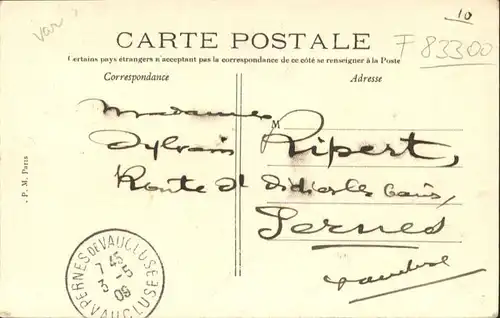 var
10
F 83300
CARTE POSTALE
Certains pays étrangers n'acceptant pas la correspondance de ce côté se renseigner à la Poste
Correspondance
Adresse
M
Madame
Sylvain Ripert,
Route St Didier les bains,
Pernes
Vaucluse
P. M. Paris
PERNES DE VAUCLUSE
7 45
3 -5
09
VAUCLUSE